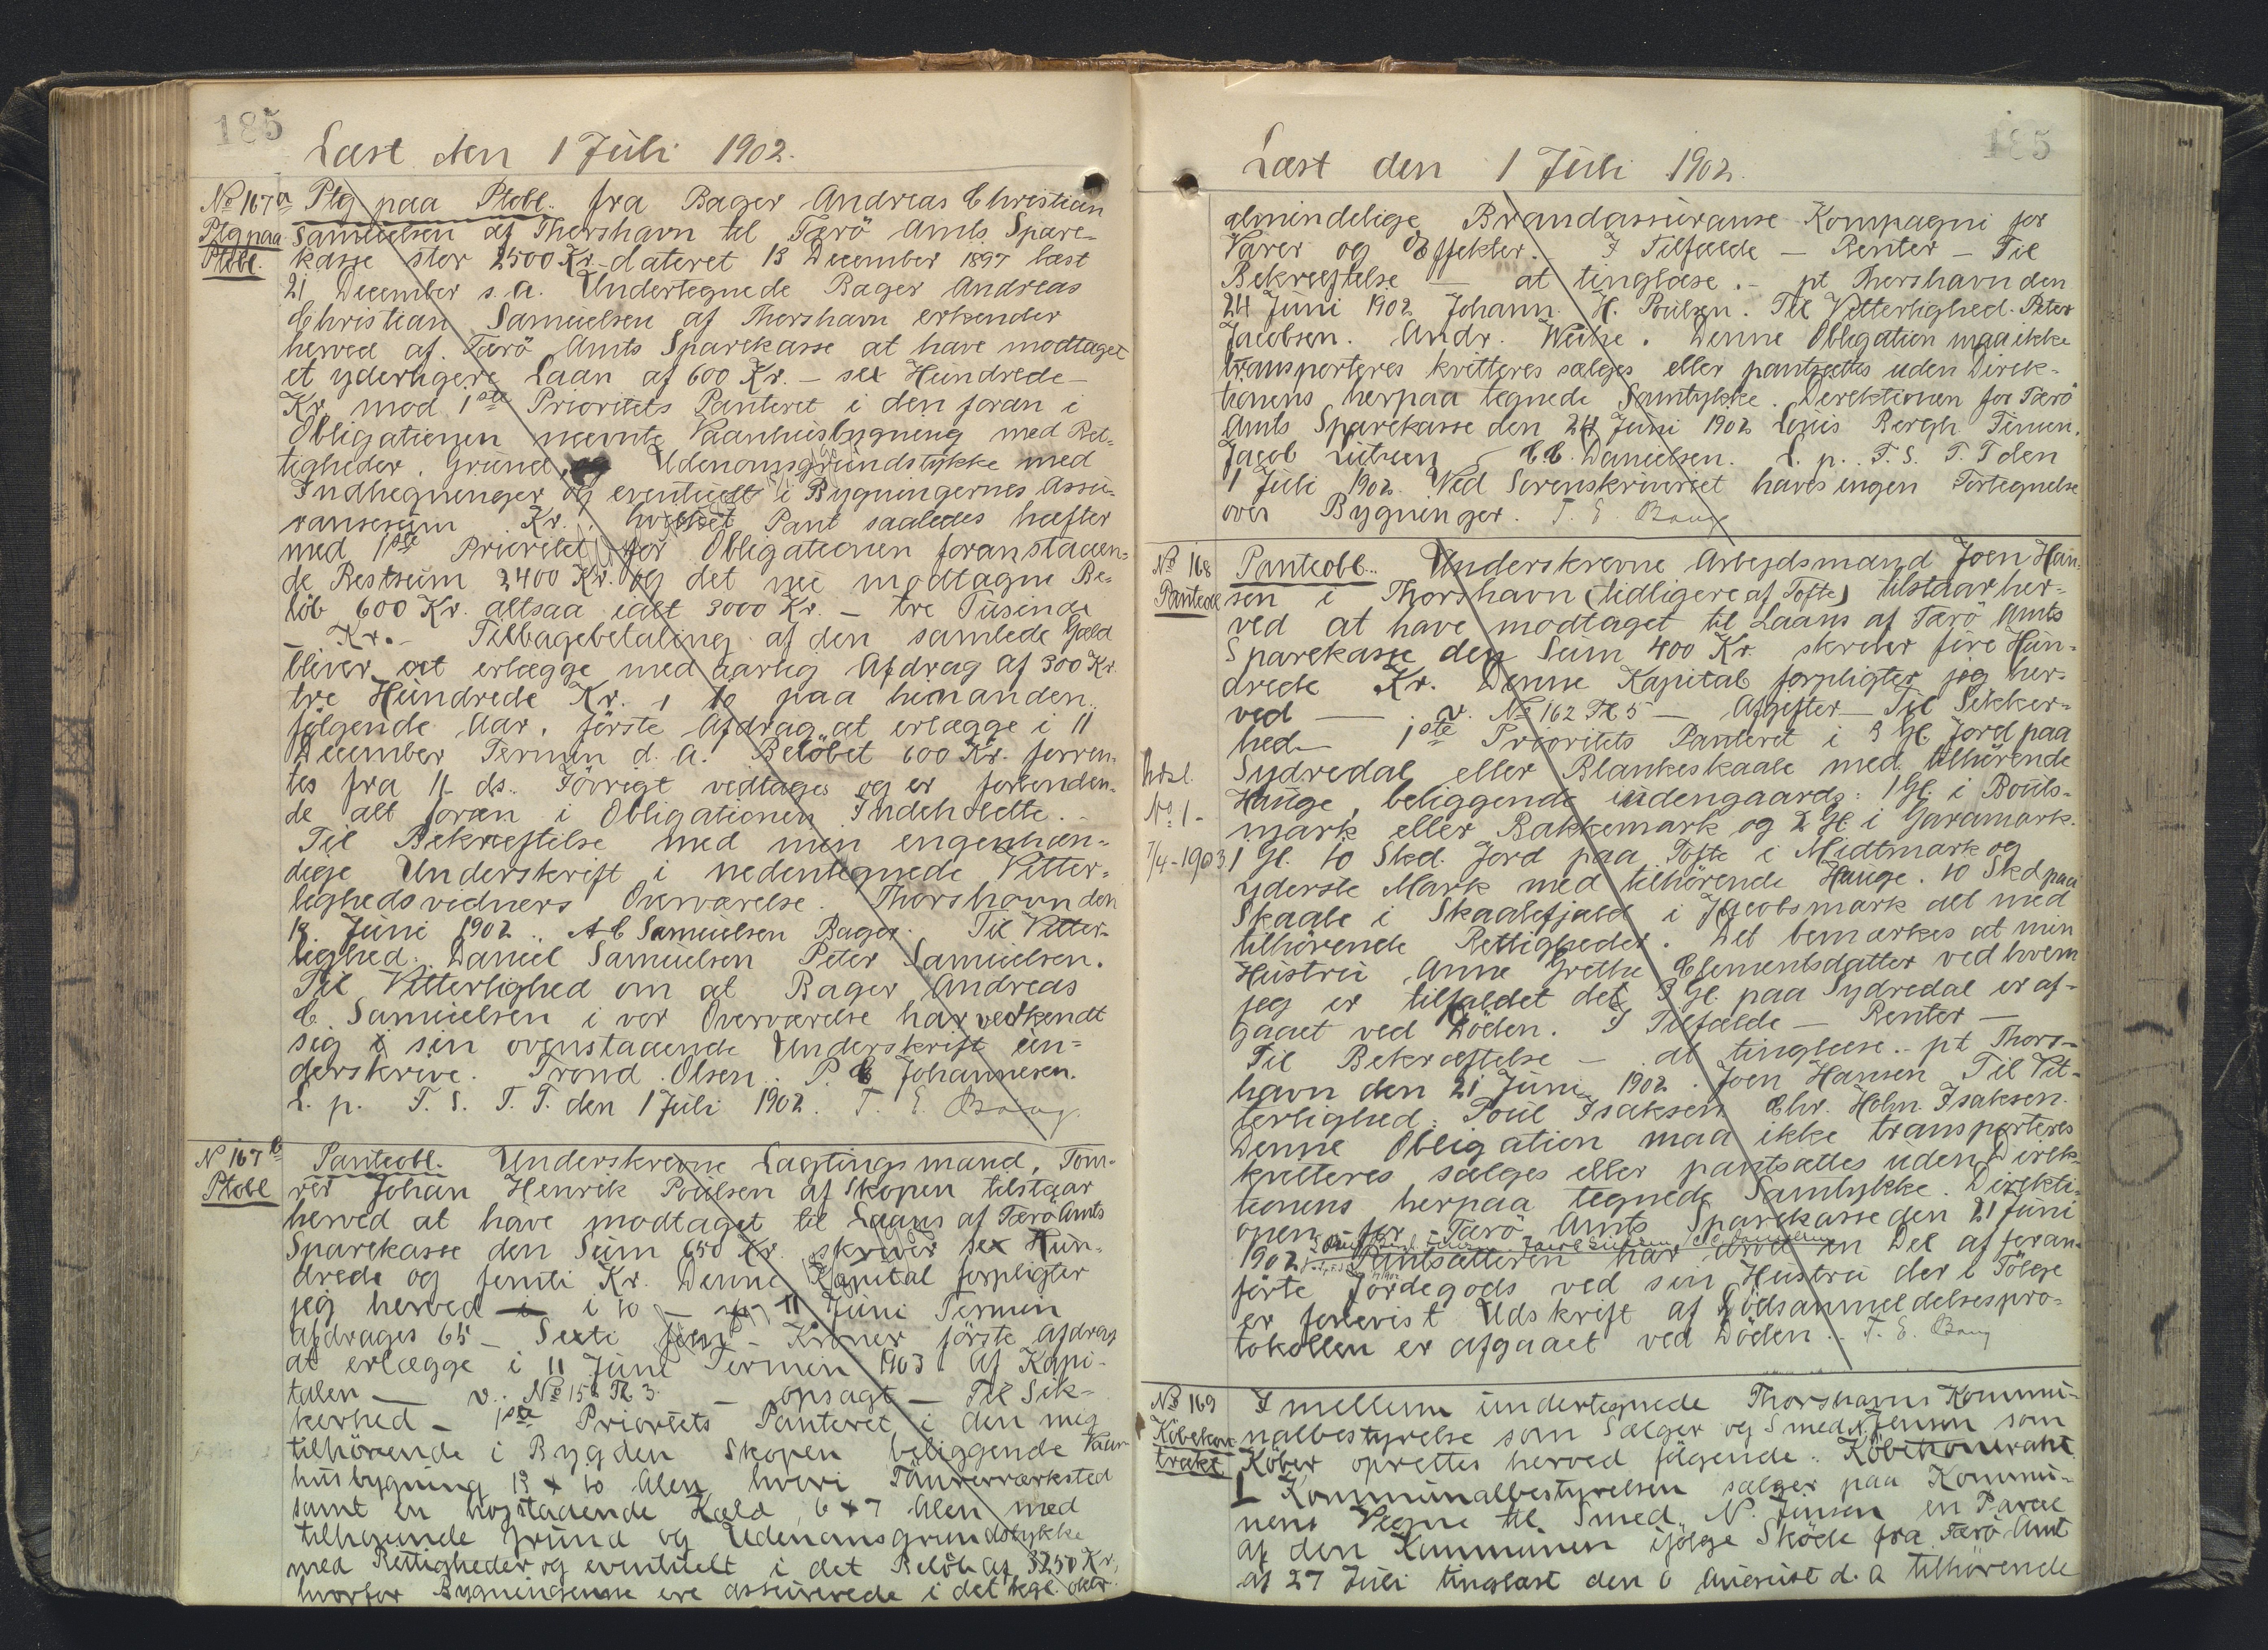 185
Læst den 1 Juli 1902.
No 167 a
Ptg paa
Ptobl.
Ptg paa Ptobl. fra Bager Andreas Christian
Samuelsen af Thorshavn til Færö Amts Spare-
kasse stor 2500 Kr. dateret 13 December 1897 læst
21 December s.a. Undertegnede Bager Andreas
Christian Samuelsen af Thorshavn erkender
herved af Færö Amts Sparekasse at have modtaget
et yderligere Laan af 600 Kr. – sex Hundrede –
Kr. mod 1ste Prioritets Panteret i den foran i
Obligationen nævnte Vaanhusbygning med Ret-
tigheder, Grund, og Udenomsgrundstykke med
Indhegninger og eventuelt i Bygningernes Assu-
ransesum Kr. hvilket Pant saaledes hæfter
med 1ste Prioritet for Obligationen foranstaaen-
de Restsum 2400 Kr. og det nu modtagne Be-
löb 600 Kr. altsaa ialt 3000 Kr. – tre Tusinde
– Kr. – Tilbagebetaling af den samlede Gæld
bliver at erlægge med aarlig Afdrag af 300 Kr.
tre Hundrede Kr. i 10 paa hinanden
fölgende Aar, förste Afdrag at erlægge i 11
December Termin d. A. Belöbet 600 Kr. forren-
tes fra 11 ds. Iövrigt vedtages og er forbinden-
de alt foran i Obligationen Indeholdte. –
Til Bekræftelse med min egenhæn-
dige Underskrift i nedentegnede Vitter-
lighedsvidners Overværelse. Thorshavn den
18 Juni 1902. A C Samuelsen Bager. Til Vitter-
lighed: Daniel Samuelsen Peter Samuelsen.
Til Vitterlighed om at Bager Andreas
C. Samuelsen i vor Overværelse har vedkendt
sig sin ovenstaaende Underskrift un-
derskrive. Trond Olsen. P. C Johannesen.
L. p. F. S. T. T. den 1 Juli 1902. T. E. Bang.
No 167 b
Ptobl
Panteobl. Underskrevne Lagtingsmand, Töm-
rer Johan Henrik Poulsen af Skopen tilstaar
herved at have modtaget til Laans af Færö Amts
Sparekasse den Sum 650 Kr. skriver sex Hun-
drede og femti Kr. Denne Kapital forpligter
jeg herved i 10 – 11 Juni Termin
afdrages 65 – Sexti fem – Kroner förste Afdrag
at erlægge i 11 Juni Termin 1903. Af Kapi-
talen – v. No 15 Th 3. – opsagt – Til Sik-
kerhed – 1ste Prioritets Panteret i den mig
tilhörende i Bygden Skopen beliggende Vaan-
husbygning 13 x 10 Alen hvori Tömrerværksted
samt en hosstaaende Kæld 6 x 7 Alen med
tilhörende Grund og Udenomsgrundstykke
med Rettigheder og eventuelt i det Belöb af 3250 Kr.
hvorfor Bygningerne ere assurerede i det kgl. oktr.
185
Læst den 1 Juli 1902.
almindelige Brandassuranse Kompagni for
Varer og Effekter. I Tilfælde – Renter – Til
Bekræftelse – at tinglæse. – pt Thorshavn den
24 Juni 1902 Johann H. Poulsen. Til Vitterlighed. Peter
Jacobsen. Andr. Weihe. Denne Obligation maa ikke
transporteres kvitteres sælges eller pantsættes uden Direk-
tionens herpaa tegnede Samtykke. Direktionen for Færö
Amts Sparekasse den 24 Juni 1902 Louis Bergh Finsen.
Jacob Lützen C.C. Danielsen. L. p. F. S. T. T den
1 Juli 1902. Ved Sorenskriveriet haves ingen Fortegnelse
over Bygninger. T. E. Bang
No 168
Panteobl
Panteobl. Underskrevne Arbejdsmand Joen Han-
sen i Thorshavn (tidligere af Tofte) tilstaar her-
ved at have modtaget til Laans af Færö Amts
Sparekasse den Sum 400 Kr. skriver fire Hun-
drede Kr. Denne Kapital forpligter jeg her-
ved – v. No 162 Th 5 – Afgifter – Til Sikker-
hed – 1ste Prioritets Panteret i 3 Gl. Jord paa
Sydredal eller Blankeskaale med tilhörende
Hauge, beliggende indengaards: 1 Gl. i Bouts-
mark eller Bakkemark og 2 Gl. i Garamark.
1 Gl. 10 Skd. Jord paa Tofte i Midtmark og
yderste Mark med tilhörende Hauge. 10 Skd paa
Skaale i Skaalefjald i Jacobsmark alt med
tilhörende Rettigheder. Det bemærkes at min
Hustru Anne Grethe Clementsdatter ved hvem
jeg er tilfaldet det 3 Gl. paa Sydredal er af-
gaaet ved Döden. I Tilfælde – Renter –
Til Bekræftelse – at tinglæse. – pt Thors-
havn den 21 Juni 1902. Joen Hansen Til Vit-
terlighed: Poul Isaksen Chr. Holm Isaksen.
Denne Obligation maa ikke transporteres
kvitteres sælges eller pantsættes uden Direk-
tionens herpaa tegnede Samtykke. Direkti-
onen for Færö Amts Sparekasse den 21 Juni
1902. Pantsætteren har arvet en Del af foran-
förte Jordegods ved sin Hustru der i Fölge
er forevist Udskrift af Dödsanmeldelsespro-
tokollen er afgaaet ved Döden. T. E. Bang
No 1 –
7/4 – 1903
No 169
Köbekon-
trakt
Imellem undertegnede Thorshavns Kommu-
nalbestyrelse som Sælger og Smed N. Jensen som
Köber oprettes herved fölgende: Köbekontrakt.
I Kommunalbestyrelsen sælger paa Kommu-
nens Vegne til Smed N. Jensen en Parcel
af den Kommunen ifölge Sköde fra Færö Amt
af 27 Juli tinglæst den 6 August d. A tilhörende